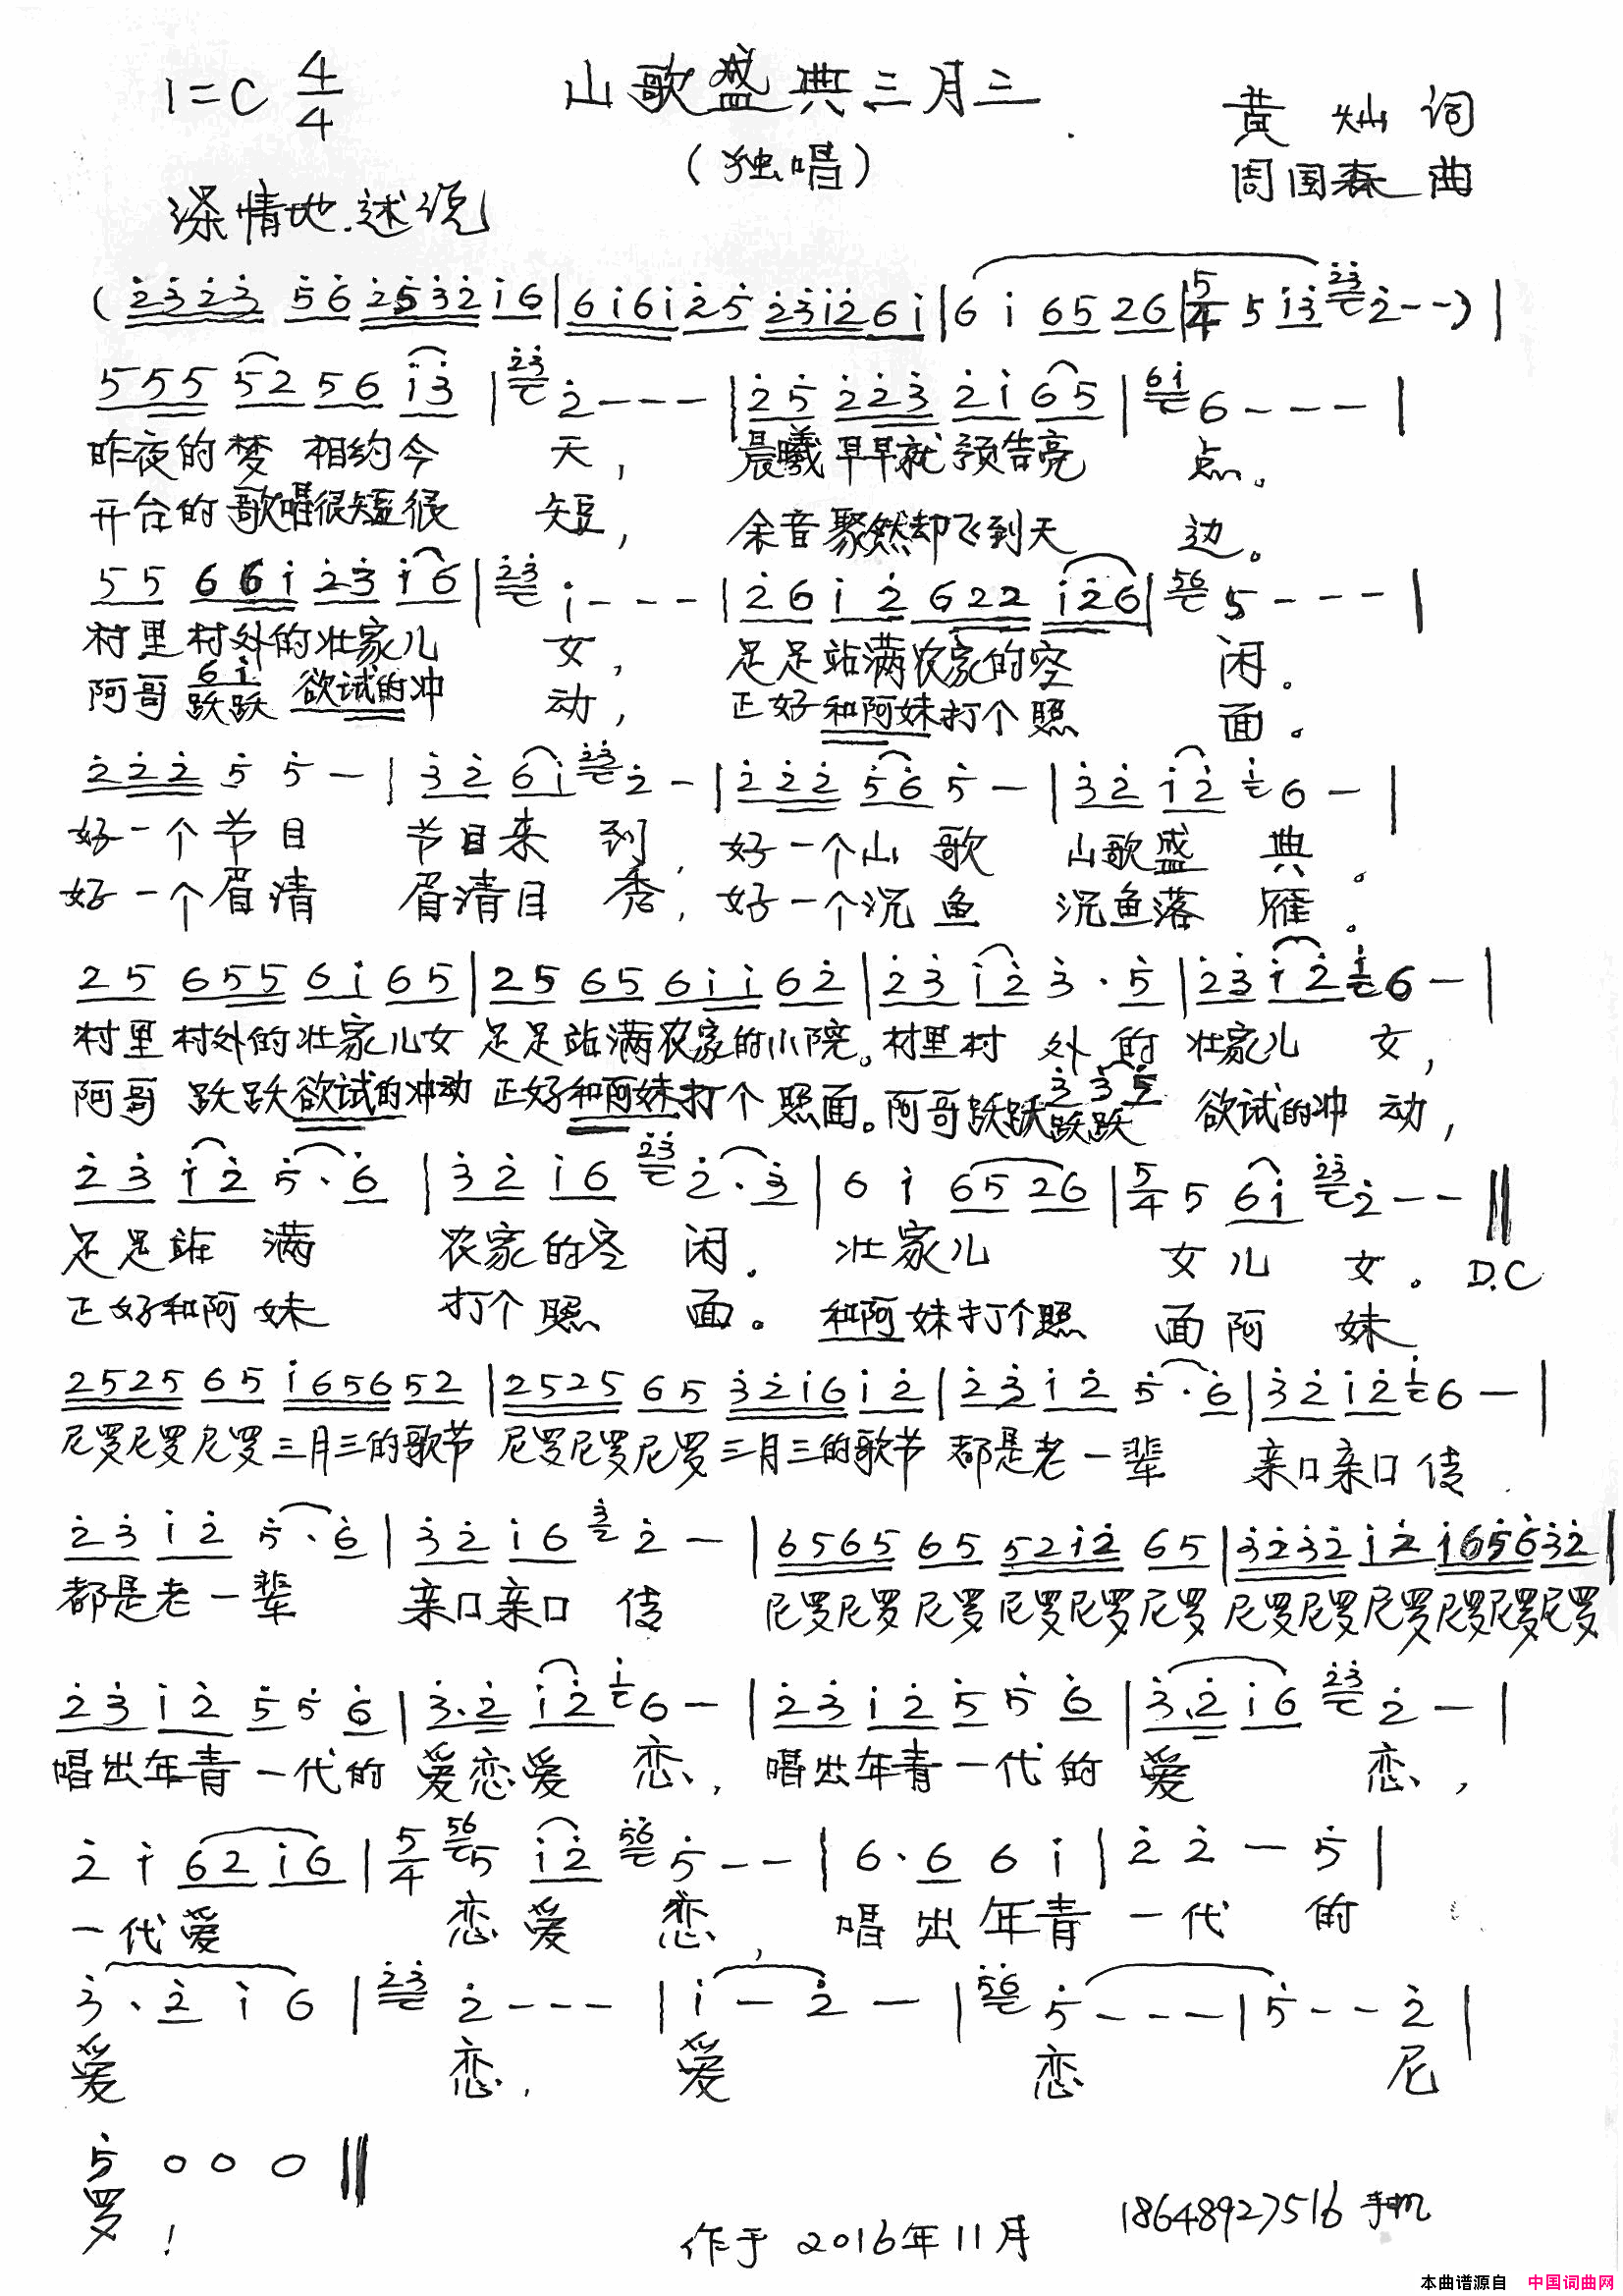 1=C 4/4 山歌盛典三月三 黄灿词
(独唱) 周国森曲
深情地.述说
(2̇3̇2̇3̇ 5̇6̇ 2̇5̇3̇2̇ i6|6i6i 2̇5̇ 2̇3̇i2̇ 6i|6 i 65 26|5/4 5 i3̇ 2̇3̇ 2̇--)|
555 52 56 i3̇ |2̇3̇ 2̇---|2̇5̇ 2̇2̇3̇ 2̇i 65|6i 6---|
昨夜的梦 相约今 天, 晨曦早早就预告亮 点。
开台的歌唱很短很 短, 余音聚然却飞到天 边。
55 66i 2̇3̇ i6|2̇3̇ i---|2̇6 i2̇ 622 i2̇6|56 5---|
村里村外的壮家儿 女, 足足站满农家的空 闲.
6i
阿哥跃跃 欲试的冲 动, 正好和阿妹打个照 面。
2̇2̇2̇ 5̇ 5̇ -|3̇2̇ 6i 2̇3̇ 2̇ -|2̇2̇2̇ 5̇6̇ 5̇ -|3̇2̇ i2̇ i 6 -|
好一个节目 节目来 到, 好一个山 歌 山歌盛 典。
好一个眉清 眉清目 秀, 好一个沉 鱼 沉鱼落 雁。
25 655 6i 65|25 65 6ii 62̇|2̇3̇ i2̇ 3̇.5̇|2̇3̇ i2̇ i 6 -|
村里村外的壮家儿女 足足站满农家的小院。村里村 外 的 壮家儿 女,
3̇ 3̇5̇
阿哥 跃跃欲试的冲动 正好和阿妹打个照面。阿哥跃跃跃跃 欲试的冲 动,
2̇3̇ i2̇ 5̇.6̇|3̇2̇ i6 2̇3̇ 2̇.3̇|6 i 65 26|5/4 5 6i 2̇3̇ 2̇--‖
足足站 满 农家的空 闲. 壮家儿 女儿 女。D.C
正好和阿妹 打个照 面。和阿妹打个照 面阿 妹
2525 65 i656 52|2525 65 3̇2̇i6 i2̇|2̇3̇ i2̇ 5̇.6̇|3̇2̇ i2̇ i 6 -|
尼罗尼罗尼罗三月三的歌节 尼罗尼罗尼罗三月三的歌节 都是老一辈 亲口亲口传
2̇3̇ i2̇ 5̇.6̇|3̇2̇ i6 3̇ 2̇ -|6565 65 52i2̇ 65|3̇2̇3̇2̇ i2̇ i656 3̇2̇|
都是老一辈 亲口亲口 传 尼罗尼罗尼罗尼罗尼罗尼罗 尼罗尼罗尼罗尼罗尼罗尼罗
2̇3̇ i2̇ 5̇ 5̇ 6̇|3̇.2̇ i2̇ i 6 -|2̇3̇ i2̇ 5̇ 5̇ 6̇|3̇.2̇ i6 2̇3̇ 2̇ -|
唱出年青一代的 爱恋爱 恋, 唱出年青一代的 爱 恋,
2̇ i 62 i6|5/4 56 5 i2̇ 5̇6̇ 5̇--|6.6 6 i|2̇ 2̇ - 5̇|
一代爱 恋爱 恋, 唱出年青 一代 的
3̇.2̇ i 6|2̇3̇ 2̇---|i - 2̇ -|5̇6̇ 5̇---|5̇--2̇|
爱 恋, 爱 恋 尼
5̇ 0 0 0‖
罗!
作于2016年11月 18648927516手机
本曲谱源自 中国词曲网